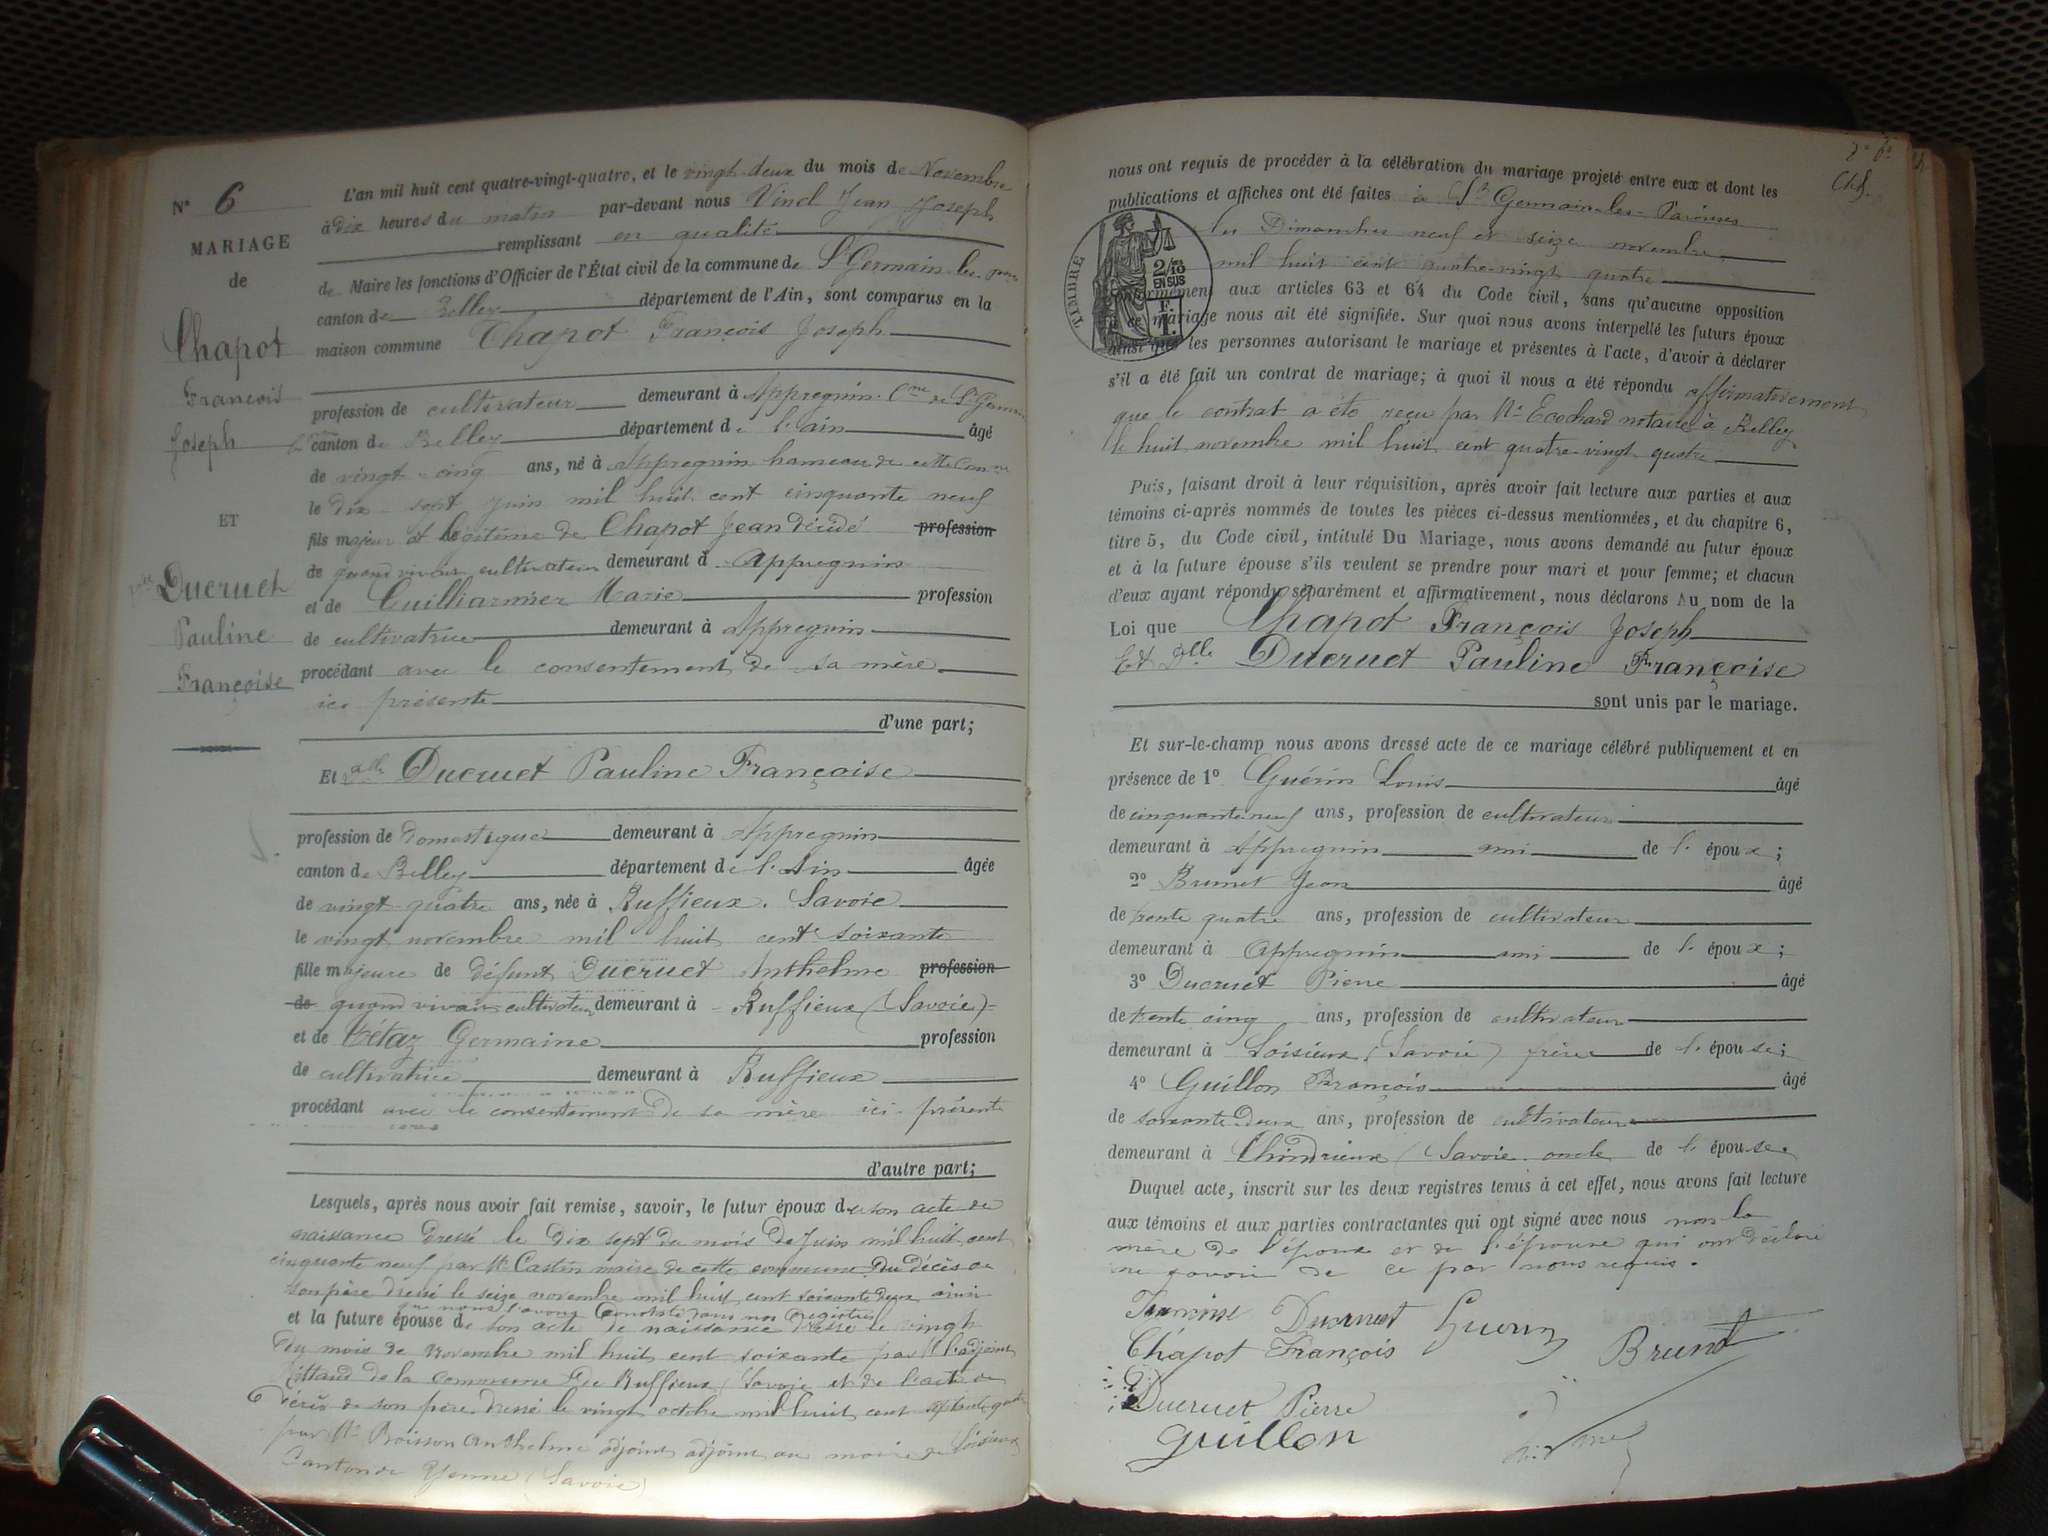 N° 6
MARIAGE
de
Chapot
François
Joseph
ET
Ducruet
Pauline
Françoise
L'an mil huit cent quatre-vingt-quatre, et le vingt-deux du mois de Novembre
à dix heures du matin par-devant nous Vincl Jean Joseph
remplissant en qualité
de Maire les fonctions d'Officier de l'État civil de la commune de St Germain-les-
canton de Belley département de l'Ain, sont comparus en la
maison commune Chapot François Joseph
profession de cultivateur demeurant à Appregnin Cne de St Germain
canton de Belley département de l'ain âgé
de vingt-cinq ans, né à Appregnin hameau de cette Comne
le dix-sept juin mil huit cent cinquante neuf
fils majeur et légitime de Chapot Jean décédé profession
de quand vivait cultivateur demeurant à Appregnin
et de Guilliarmier Marie profession
de cultivatrice demeurant à Appregnin
procédant avec le consentement de sa mère
ici présente
d'une part;
Et dlle Ducruet Pauline Françoise
profession de Domestique demeurant à Appregnin
canton de Belley département de l'Ain âgée
de vingt-quatre ans, née à Ruffieux. Savoie
le vingt novembre mil huit cent soixante
fille majeure de défunt Ducruet Anthelme profession
de quand vivait cultivateur demeurant à Ruffieux (Savoie)
et de Vétaz Germaine profession
de cultivatrice demeurant à Ruffieux
procédant avec le consentement de sa mère ici présente
d'autre part;
Lesquels, après nous avoir fait remise, savoir, le futur époux de son acte de
naissance dressé le dix sept du mois de Juin mil huit cent
cinquante neuf par Mr Castin maire de cette commune. Du décès de
son père dressé le seize novembre mil huit cent soixante deux ainsi
que nous l'avons constaté dans nos registres
et la future épouse de son acte de naissance dressé le vingt
du mois de novembre mil huit cent soixante par l'adjoint
Rittaud de la commune de Ruffieux (Savoie et de l'acte de
décès de son père dressé le vingt octobre mil huit cent septante quatre
par Mr Boisson Anthelme adjoint adjoint au maire de Loisieux
Canton de Yenne (Savoie)
nous ont requis de procéder à la célébration du mariage projeté entre eux et dont les
publications et affiches ont été faites à St Germain-les-Paroisses
les Dimanches neuf et seize novembre
mil huit cent quatre-vingt quatre
TIMBRE
2/10
EN SUS
conformément aux articles 63 et 64 du Code civil, sans qu'aucune opposition
à ce mariage nous ait été signifiée. Sur quoi nous avons interpellé les futurs époux
ainsi que les personnes autorisant le mariage et présentes à l'acte, d'avoir à déclarer
s'il a été fait un contrat de mariage; à quoi il nous a été répondu affirmativement
que le contrat a été reçu par Me Ecochard notaire à Belley
le huit novembre mil huit cent quatre-vingt quatre
Puis, faisant droit à leur réquisition, après avoir fait lecture aux parties et aux
témoins ci-après nommés de toutes les pièces ci-dessus mentionnées, et du chapitre 6,
titre 5, du Code civil, intitulé Du Mariage, nous avons demandé au futur époux
et à la future épouse s'ils veulent se prendre pour mari et pour femme; et chacun
d'eux ayant répondu séparément et affirmativement, nous déclarons Au nom de la
Loi que Chapot François Joseph
Et Dlle Ducruet Pauline Françoise
sont unis par le mariage.
Et sur-le-champ nous avons dressé acte de ce mariage célébré publiquement et en
présence de 1° Guérin Louis âgé
de cinquante neuf ans, profession de cultivateur
demeurant à Appregnin ami de l'époux;
2° Brunet Jean âgé
de trente quatre ans, profession de cultivateur
demeurant à Appregnin ami de l'époux;
3° Ducruet Pierre âgé
de trente cinq ans, profession de cultivateur
demeurant à Loisieux (Savoie) frère de l'épouse;
4° Guillon François âgé
de soixante-deux ans, profession de cultivateur
demeurant à Chindrieux (Savoie oncle de l'épouse
Duquel acte, inscrit sur les deux registres tenus à cet effet, nous avons fait lecture
aux témoins et aux parties contractantes qui ont signé avec nous non la
mère de l'époux et de l'épouse qui ont déclaré
ne savoir de ce par nous requis.
Ducruet Guerin
Chapot François Brunet
Ducruet Pierre
guillon